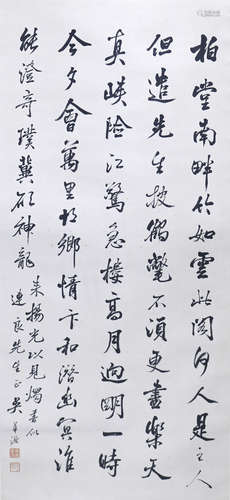 柏堂南畔竹如雲此閣何人是主人
但遣先生披鶴氅不須更畫樂天
真峽險江驚急樓高月迥明一時
今夕會萬里故鄉情卞和潛幽冥誰
能證奇璞冀願神龍
來揚光以見燭書似
連良先生正 吳華源